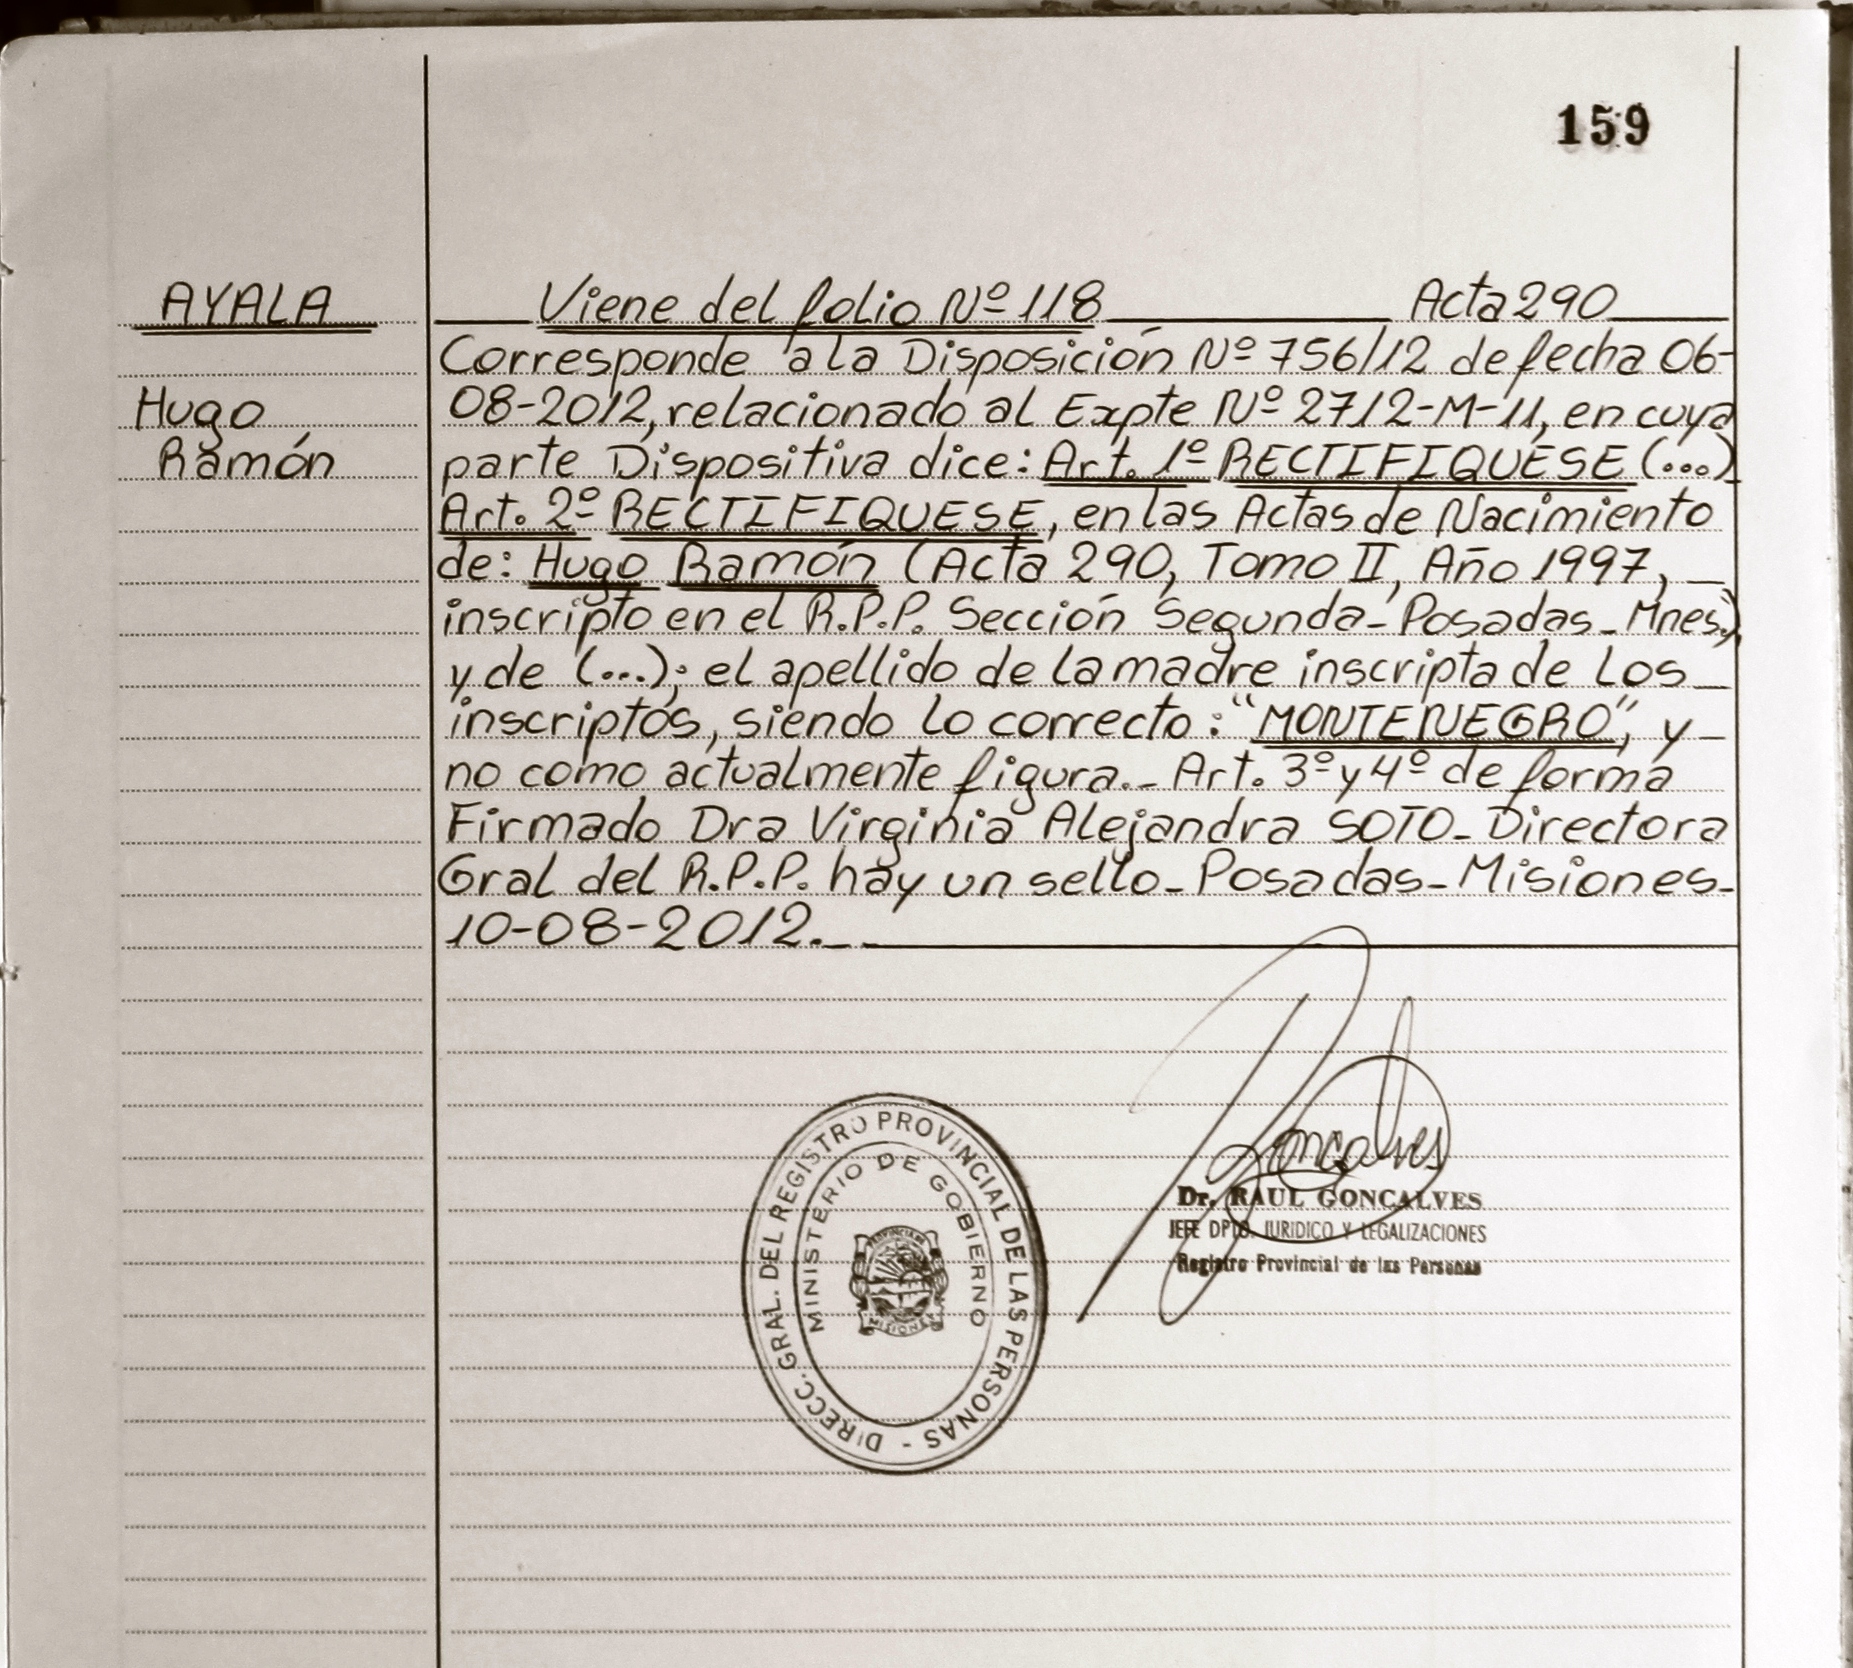 159
AYALA
Hugo
Ramón
Viene del folio Nº 118 Acta 290
Corresponde a la Disposición Nº 756/12 de fecha 06-
08-2012, relacionado al Expte Nº 2712-M-11, en cuya
parte Dispositiva dice: Art. 1º RECTIFIQUESE (...)
Art. 2º RECTIFIQUESE, en las Actas de Nacimiento
de: Hugo Ramón (Acta 290, Tomo II, Año 1997,
inscripto en el R.P.P. Sección Segunda-Posadas-Mnes.)
y de (...); el apellido de la madre inscripta de los
inscriptos, siendo lo correcto: "MONTENEGRO", y
no como actualmente figura.- Art. 3º y 4º de forma
Firmado Dra Virginia Alejandra SOTO-Directora
Gral del R.P.P. hay un sello-Posadas-Misiones-
10-08-2012.-
DIRECC. GRAL. DEL REGISTRO PROVINCIAL DE LAS PERSONAS -
MINISTERIO DE GOBIERNO
PROVINCIA DE
MISIONES
Goncalves
Dr. RAUL GONCALVES
JEFE DPTO. JURIDICO Y LEGALIZACIONES
Registro Provincial de las Personas